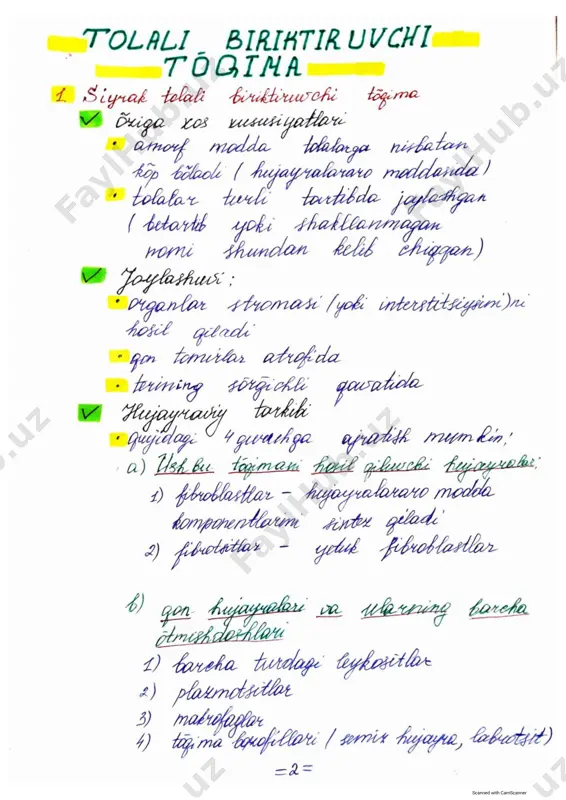 TOLALI BIRIKTIRUVCHI
TŌQIMA
1. Siyrak tolali biriktiruvchi tōqima
Ōziga xos xususiyatlari
• amorf modda tolalarga nisbatan
kōp bōladi (hujayralararo moddasida)
• tolalar turli tartibda joylashgan
(betartib yoki shakllanmagan
nomi shundan kelib chiqqan)
Joylashuvi:
• organlar stromasi (yoki interstitsiysini)ni
hosil qiladi
• qon tomirlar atrofida
• terining sōrg'ichli qavatida
Hujayraviy tarkibi
• quyidagi 4 guruhga ajratish mumkin:
a) Ushbu tōqimani hosil qiluvchi hujayralar:
1) fibroblastlar – hujayralararo modda
komponentlarini sintez qiladi
2) fibrotsitlar – yetuk fibroblastlar
b) qon hujayralari va ularning barcha
ōtmishdoshlari
1) barcha turdagi leykositlar
2) plazmotsitlar
3) makrofaglar
4) tōqima bazofillari (semiz hujayra, labrotsit)
=2=
Scanned with CamScanner
FaylHub.uz
FaylHub.uz
FaylHub.uz
FaylHub.uz